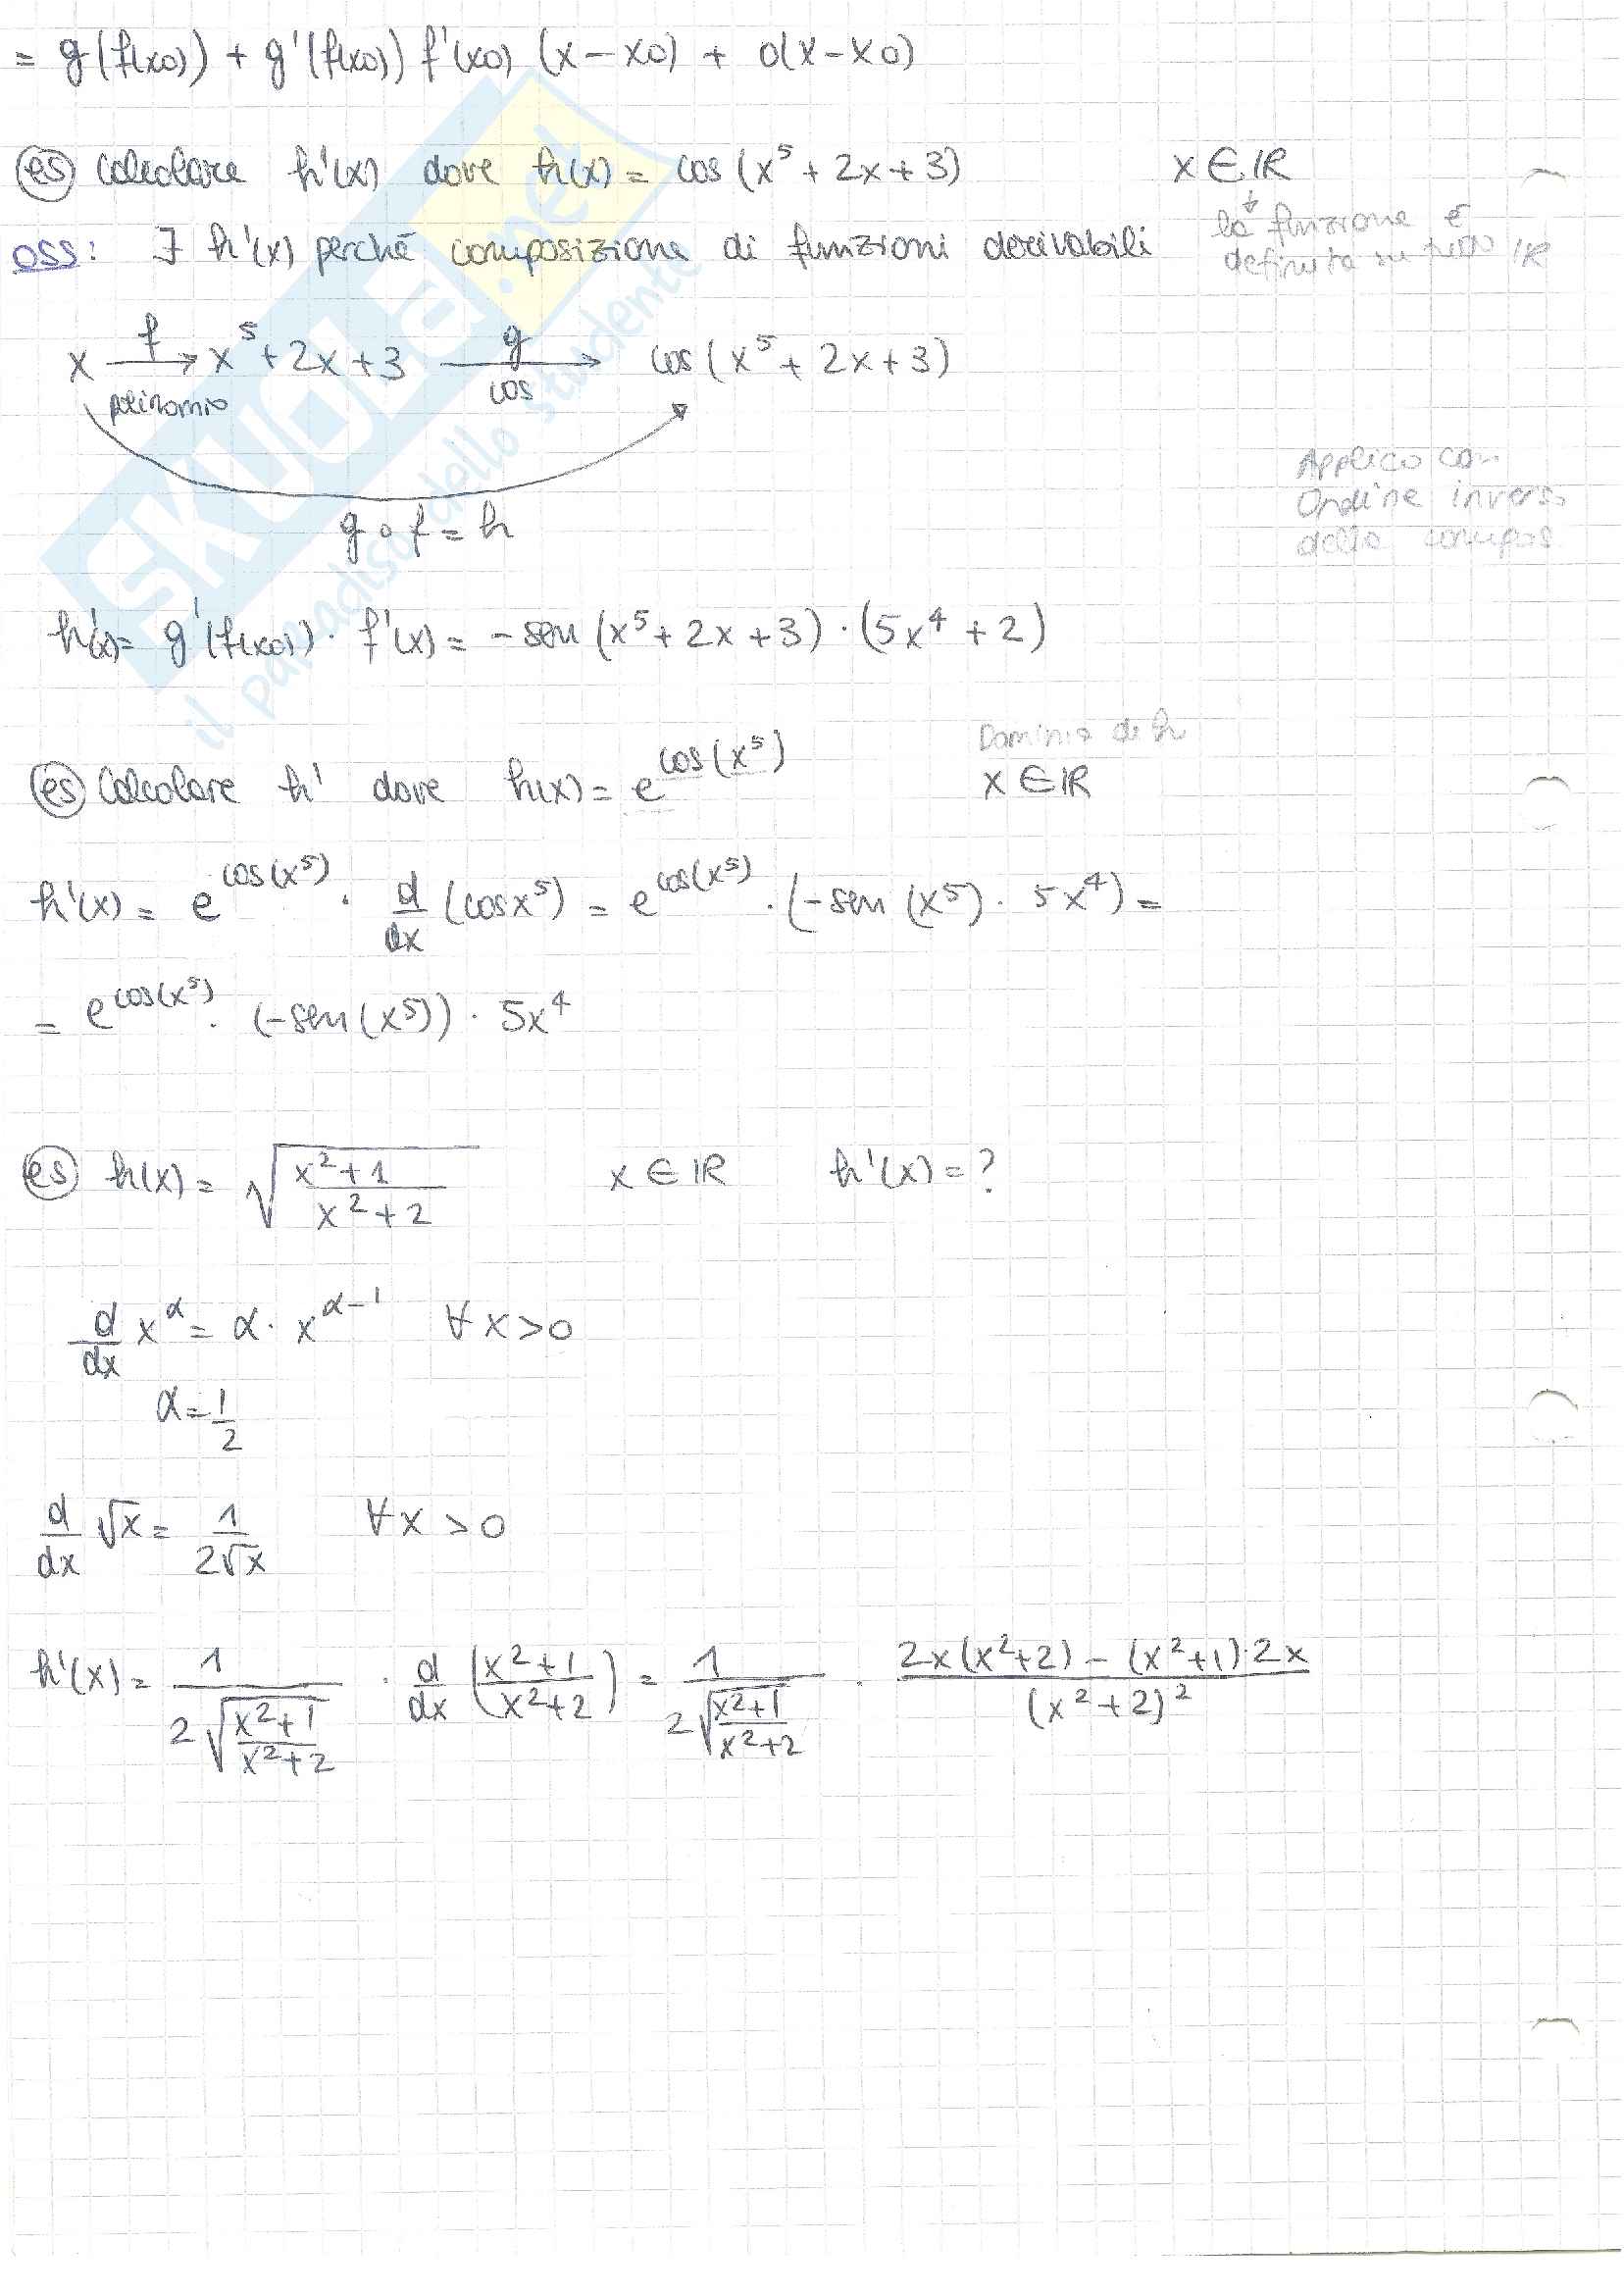 = g(f(x0)) + g'(f(x0)) f'(x0) (x-x0) + o(x-x0)
es Calcolare h'(x) dove h(x) = cos(x⁵+2x+3) x∈ℝ
↓ la funzione è
definita su tutto ℝ
oss: ∃ h'(x) perché composizione di funzioni derivabili
x —f→ x⁵+2x+3 —g→ cos(x⁵+2x+3)
polinomio cos
g∘f = h
Applico con
Ordine invers.
della compos
h'(x) = g'(f(x0)) · f'(x) = -sen(x⁵+2x+3)·(5x⁴+2)
Dominio di h
es Calcolare h' dove h(x) = e^cos(x⁵) x∈ℝ
h'(x) = e^cos(x⁵) · d/dx (cosx⁵) = e^cos(x⁵) · (-sen(x⁵) · 5x⁴) =
= e^cos(x⁵) · (-sen(x⁵)) · 5x⁴
es h(x) = √((x²+1)/(x²+2)) x∈ℝ h'(x)=?
d/dx x^α = α · x^(α-1) ∀x>0
α = 1/2
d/dx √x = 1/(2√x) ∀x>0
h'(x) = 1/(2√((x²+1)/(x²+2))) · d/dx ((x²+1)/(x²+2)) = 1/(2√((x²+1)/(x²+2))) · (2x(x²+2) - (x²+1)·2x)/(x²+2)²
SKUOLA.net
il paradiso dello studente